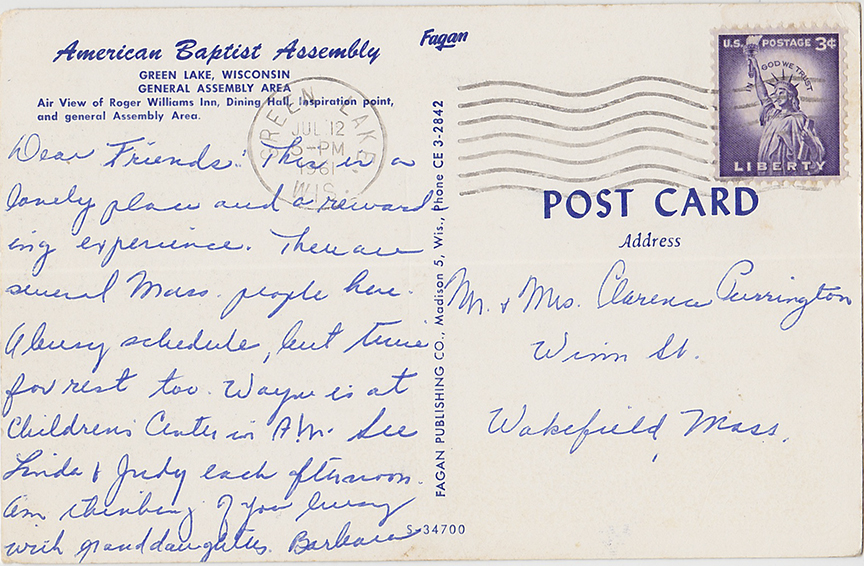 American Baptist Assembly
GREEN LAKE, WISCONSIN
GENERAL ASSEMBLY AREA
Air View of Roger Williams Inn, Dining Hall, Inspiration point,
and general Assembly Area.
Dear Friends: This is a
lovely place and a reward
ing experience. There are
several Mass. people here.
A busy schedule, but time
for rest too. Wayne is at
Childrens Center in A.M. See
Linda & Judy each afternoon.
Am thinking of you busy
with granddaughters. Barbara
Fagan
GREEN LAKE
JUL 12
5-PM
1961
WIS.
FAGAN PUBLISHING CO., Madison 5, Wis., Phone CE 3-2842
S-34700
U.S. POSTAGE 3¢
IN GOD WE TRUST
LIBERTY
POST CARD
Address
Mr. & Mrs. Clarence Purrington
Winn St.
Wakefield, Mass.